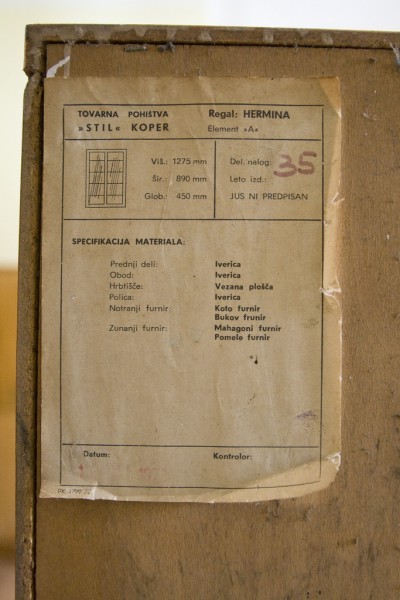 TOVARNA POHIŠTVA
»STIL« KOPER
Regal: HERMINA
Element »A«
Viš.: 1275 mm
Šir.: 890 mm
Glob.: 450 mm
Del. nalog: 35
Leto izd.:
JUS NI PREDPISAN
SPECIFIKACIJA MATERIALA:
Prednji deli: Iverica
Obod: Iverica
Hrbtišče: Vezana plošča
Polica: Iverica
Notranji furnir: Koto furnir
Bukov frunir
Zunanji furnir: Mahagoni furnir
Pomele furnir
Datum: Kontrolor: